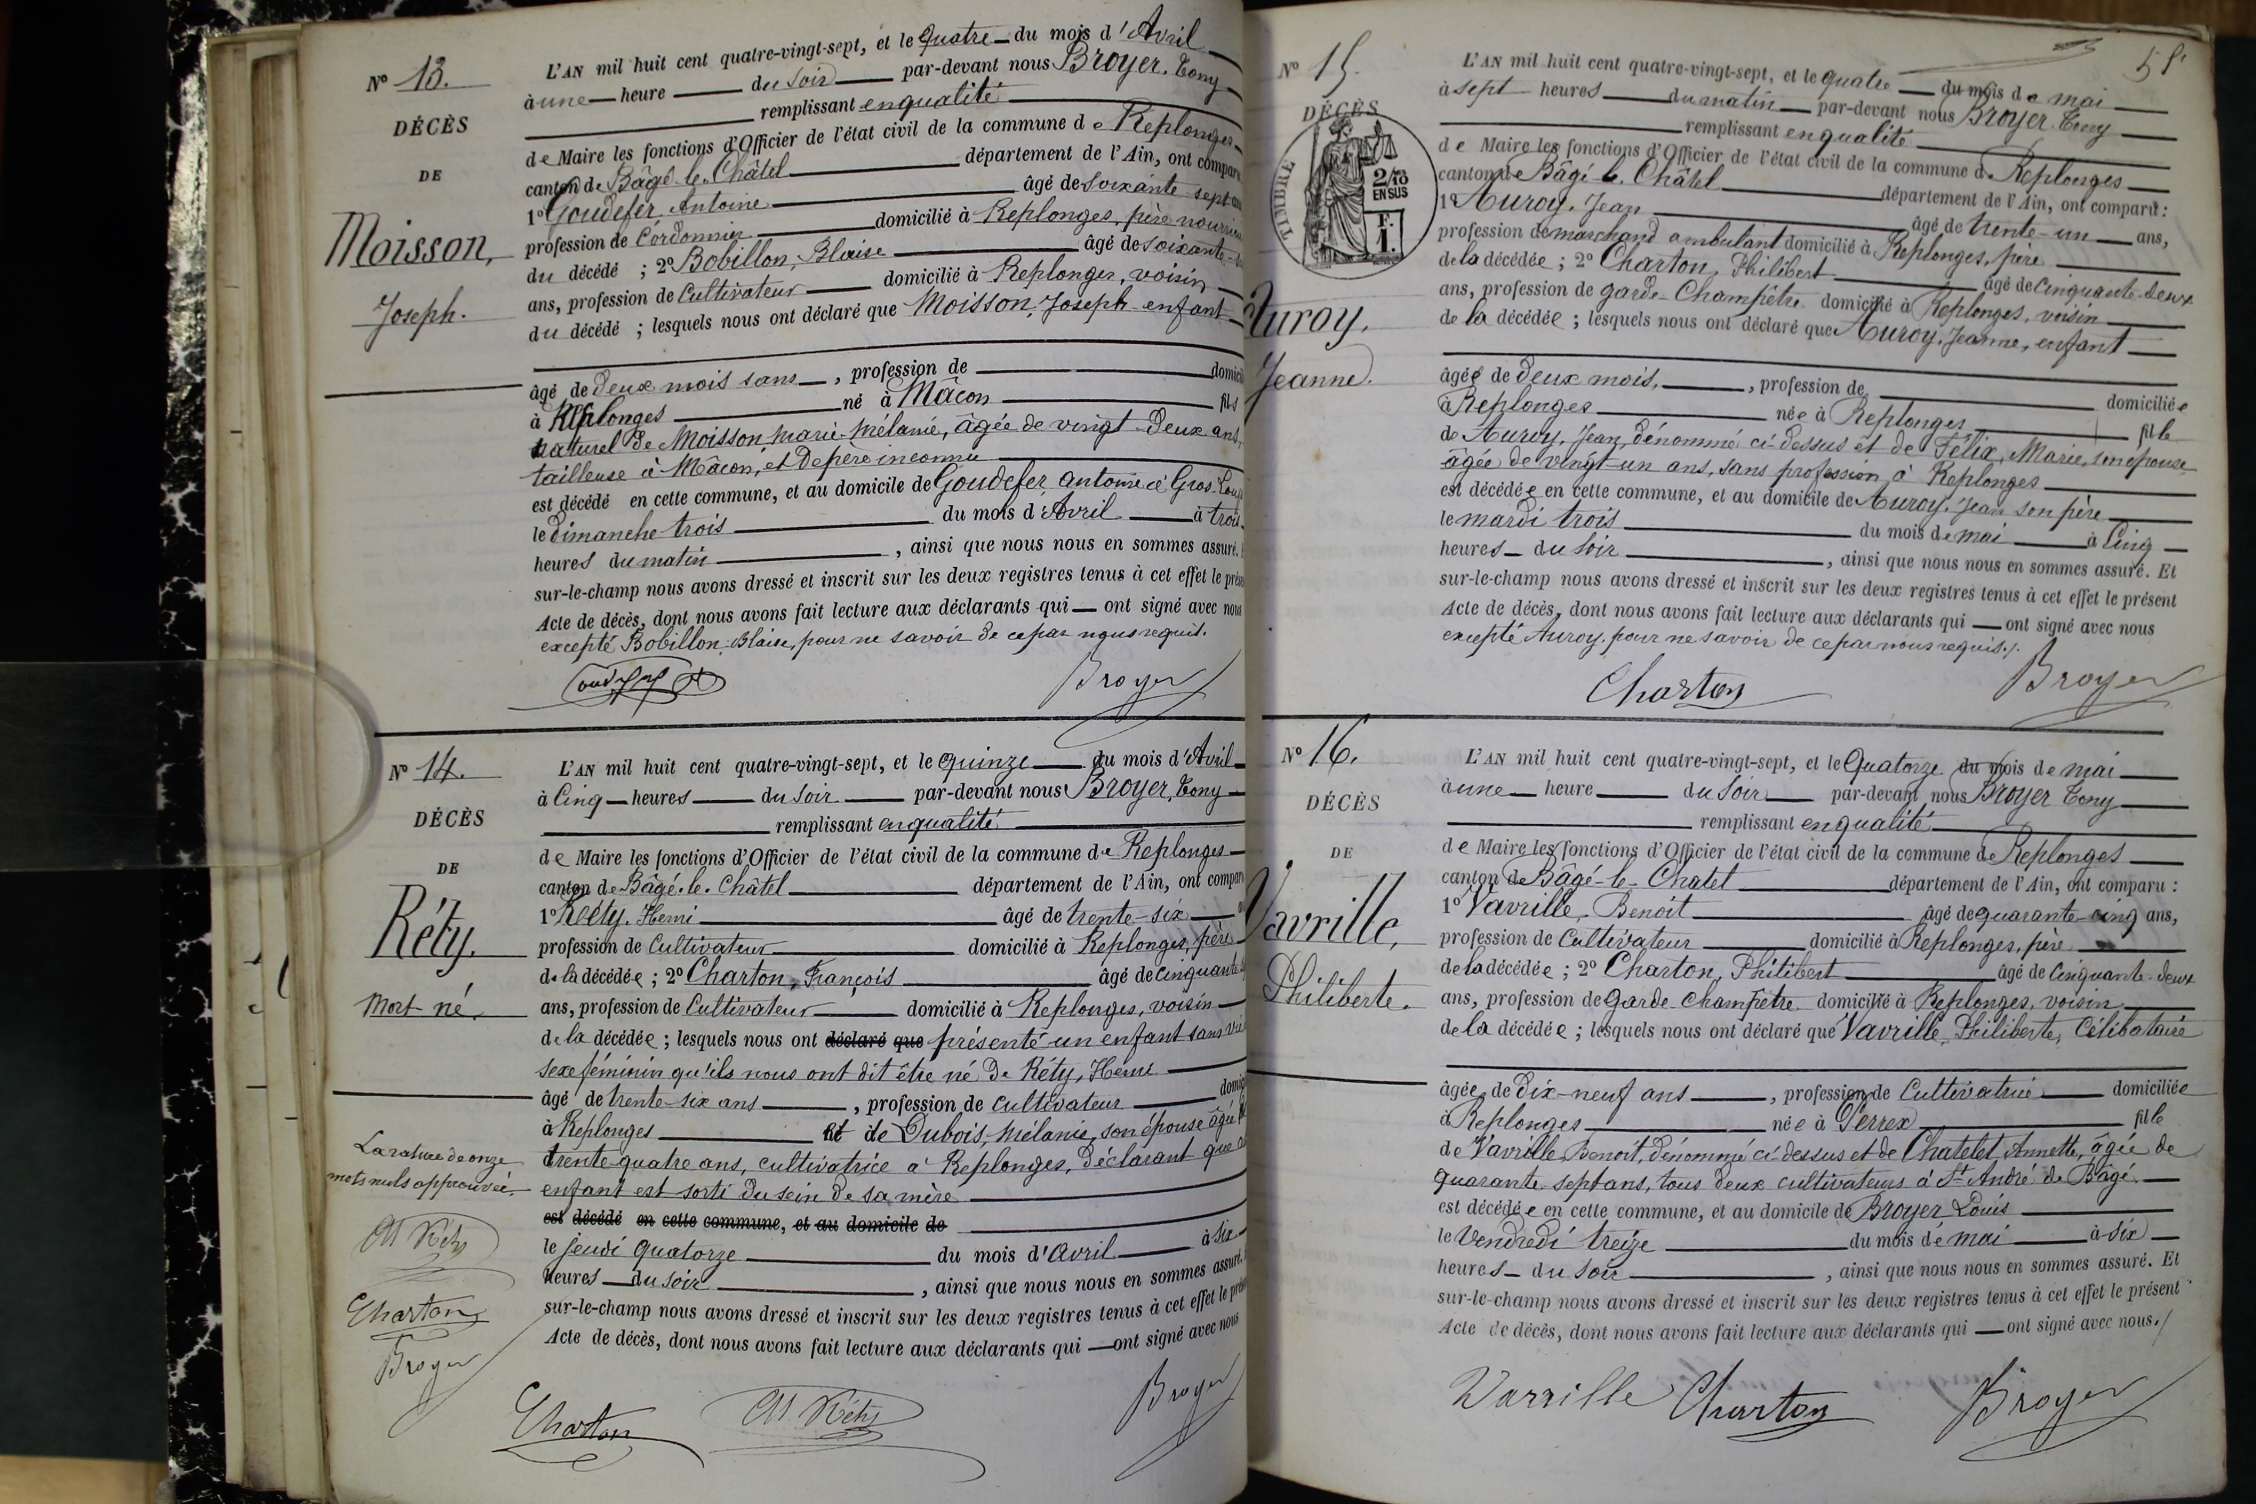 N° 13.
DÉCÈS
DE
Moisson,
Joseph.
L'AN mil huit cent quatre-vingt-sept, et le Quatre du mois d'Avril
à une heure du soir par-devant nous Broyer, Tony
remplissant en qualité
de Maire les fonctions d'Officier de l'état civil de la commune de Replonges
canton de Bâgé-le-Châtel département de l'Ain, ont comparu
1° Goudefer, Antoine âgé de soixante-sept
profession de Cordonnier domicilié à Replonges, père nourricier
du décédé ; 2° Bobillon, Blaise âgé de soixante-
ans, profession de Cultivateur domicilié à Replonges, voisin
du décédé ; lesquels nous ont déclaré que Moisson, Joseph enfant
âgé de deux mois sans , profession de domici
à Replonges né à Mâcon fils
naturel de Moisson Marie Mélanie, âgée de vingt-deux ans,
tailleuse à Mâcon, et de père inconnu
est décédé en cette commune, et au domicile de Goudefer, Antoine à Gros
le dimanche trois du mois d'Avril à trois
heures du matin , ainsi que nous nous en sommes assuré.
sur-le-champ nous avons dressé et inscrit sur les deux registres tenus à cet effet le prés
Acte de décès, dont nous avons fait lecture aux déclarants qui ont signé avec nous
excepté Bobillon Blaise, pour ne savoir de ce par nous requis.
Broyer
N° 14.
DÉCÈS
DE
Réty.
Mort né.
La rature de onze
mots nuls approuvée.
Réty
Charton
Broyer
L'AN mil huit cent quatre-vingt-sept, et le quinze du mois d'Avril
à Cinq heures du soir par-devant nous Broyer, Tony
remplissant en qualité
de Maire les fonctions d'Officier de l'état civil de la commune de Replonges
canton de Bâgé-le-Châtel département de l'Ain, ont compar
1° Réty, Henri âgé de trente-six
profession de Cultivateur domicilié à Replonges, père
de la décédée ; 2° Charton, François âgé de cinquante
ans, profession de Cultivateur domicilié à Replonges, voisin
de la décédée ; lesquels nous ont déclaré que présenté un enfant sans vie
sexe féminin qu'ils nous ont dit être né de Réty, Henri
âgé de trente-six ans , profession de cultivateur domi
à Replonges et de Dubois, Mélanie, son épouse âgée
trente quatre ans, cultivatrice à Replonges, déclarant que
enfant est sorti du sein de sa mère
est décédé en cette commune, et au domicile de
le jeudi quatorze du mois d'avril à six
heures du soir , ainsi que nous nous en sommes assuré.
sur-le-champ nous avons dressé et inscrit sur les deux registres tenus à cet effet le prés
Acte de décès, dont nous avons fait lecture aux déclarants qui ont signé avec nous
Charton Réty Broyer
N° 15.
DÉCÈS
TIMBRE
2/10
EN SUS
F.
1.
Auroy.
Jeanne.
L'AN mil huit cent quatre-vingt-sept, et le quatre du mois de mai
à sept heures du matin par-devant nous Broyer Tony
remplissant en qualité
de Maire les fonctions d'Officier de l'état civil de la commune de Replonges
canton de Bâgé-le-Châtel département de l'Ain, ont comparu :
1° Auroy, Jean âgé de trente-un ans,
profession de marchand ambulant domicilié à Replonges, père
de la décédée ; 2° Charton, Philibert âgé de cinquante-deux
ans, profession de garde-Champêtre domicilié à Replonges, voisin
de la décédée ; lesquels nous ont déclaré que Auroy, Jeanne, enfant
âgée de deux mois, , profession de domiciliée
à Replonges née à Replonges fille
de Auroy, Jean, dénommé ci-dessus et de Félix, Marie, son épouse
âgée de vingt-un ans, sans profession à Replonges
est décédée en cette commune, et au domicile de Auroy, Jean son père
le mardi trois du mois de mai à Cinq
heures du soir , ainsi que nous nous en sommes assuré. Et
sur-le-champ nous avons dressé et inscrit sur les deux registres tenus à cet effet le présent
Acte de décès, dont nous avons fait lecture aux déclarants qui ont signé avec nous
excepté Auroy, pour ne savoir de ce par nous requis.
Charton Broyer
N° 16.
DÉCÈS
DE
Vavrille,
Philiberte.
L'AN mil huit cent quatre-vingt-sept, et le Quatorze du mois de mai
à une heure du soir par-devant nous Broyer Tony
remplissant en qualité
de Maire les fonctions d'Officier de l'état civil de la commune de Replonges
canton de Bâgé-le-Chatel département de l'Ain, ont comparu :
1° Vavrille, Benoit âgé de quarante-cinq ans,
profession de Cultivateur domicilié à Replonges, père
de la décédée ; 2° Charton, Philibert âgé de Cinquante-deux
ans, profession de Garde-champêtre domicilié à Replonges, voisin
de la décédée ; lesquels nous ont déclaré que Vavrille, Philiberte, Célibataire
âgée de Dix-neuf ans , profession de Cultivatrice domiciliée
à Replonges née à Perrex fille
de Vavrille, Benoit, dénommé ci-dessus et de Chatelet, Annette, âgée de
quarante-sept ans, tous deux cultivateurs à St André de Bâgé
est décédée en cette commune, et au domicile de Broyer Louis
le Vendredi treize du mois de mai à six
heures du soir , ainsi que nous nous en sommes assuré. Et
sur-le-champ nous avons dressé et inscrit sur les deux registres tenus à cet effet le présent
Acte de décès, dont nous avons fait lecture aux déclarants qui ont signé avec nous.
Vavrille Charton Broyer